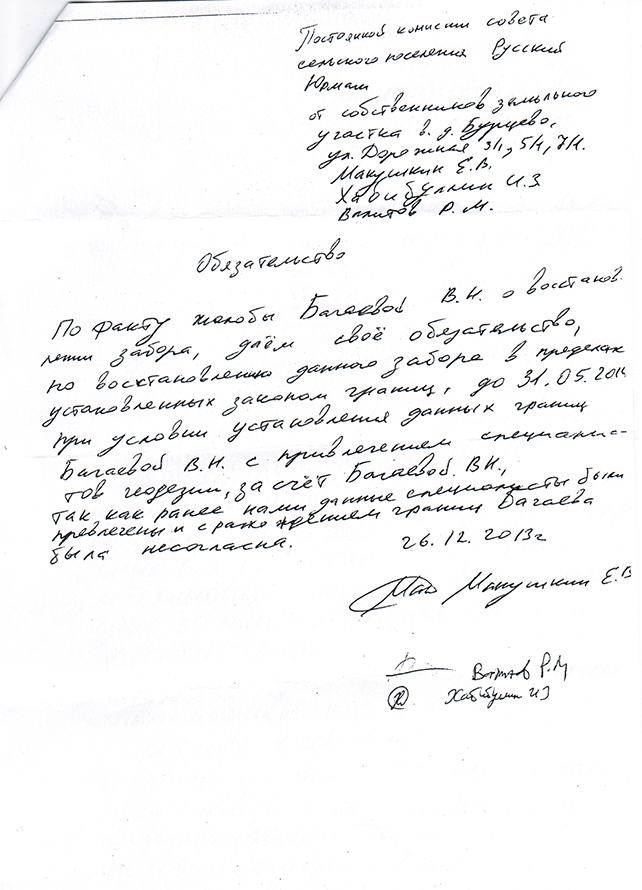 Постоянной комиссии совета
сельского поселения Русский
Юрмаш
от собственников земельного
участка в. д. Бурцево,
ул. Дорожная 3/1, 5/1, 7/1.
Макушкин Е.В.
Хабибуллин И.З
Валитов Р.М.
Обязательство
По факту жалобы Багаевой В.Н. о восстанов
лении забора, даём своё обезательство,
по восстановлению данного забора в пределах
установленных законом границ, до 31.05.2014
при условии установления данных границ
Багаевой В.Н. с привлечением специалис-
тов геодезии, за счёт Багаевой В.Н.,
так как ранее нами данные специалисты были
превлечены и с расхождением границ Багаева
была несогласна. 26.12.2013г
Макушкин Е.В
Валитов Р.М
Хабибуллин И З